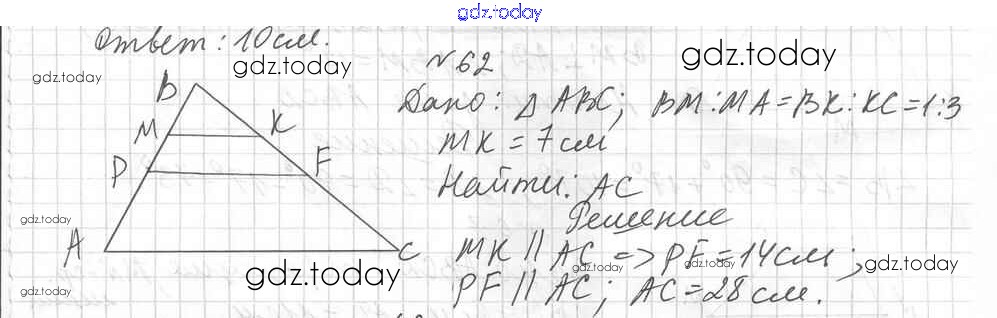 gdz.today
Ответ: 10 см.
gdz.today
gdz.today
gdz.today
№62
Дано: △ABC; BM:MA=BK:KC=1:3
MK = 7 см
Найти: AC
Решение
MK || AC => PF = 14 см;
PF || AC; AC = 28 см.
B
M
K
P
F
A
C
gdz.today
gdz.today
gdz.today
gdz.today
gdz.today
gdz.today